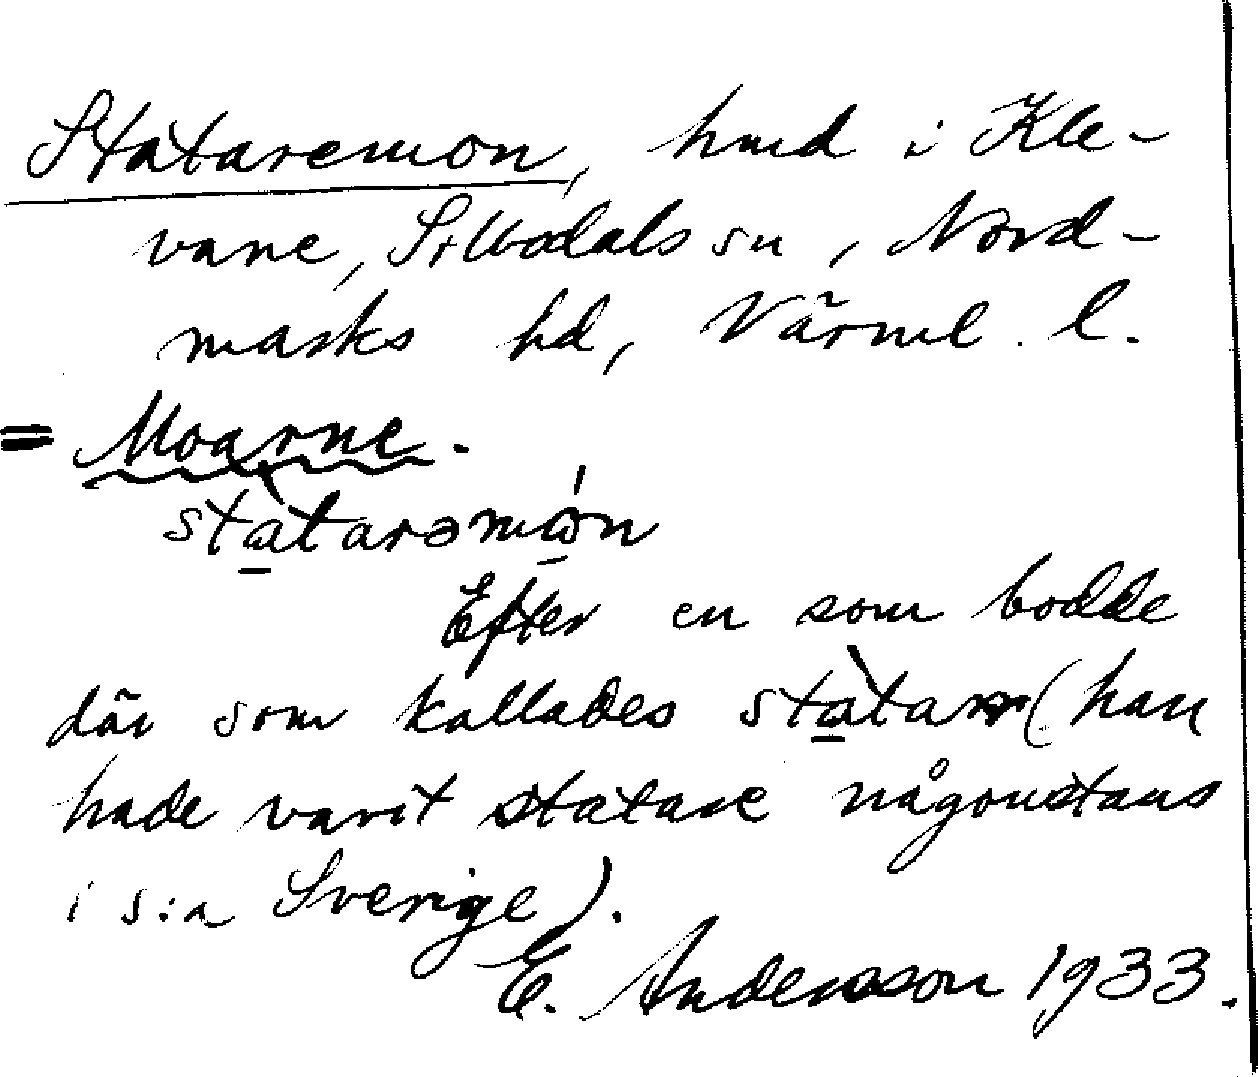 Stataremon, hmd i Kle-
vane, Sillbodals sn, Nord-
marks hd, Värml. l.
= Moarne.
stàtarəmón
Efter en som bodde
där som kallades stàtarn (han
hade varit statare någonstans
i s:a Sverige).
E. Andersson 1933.